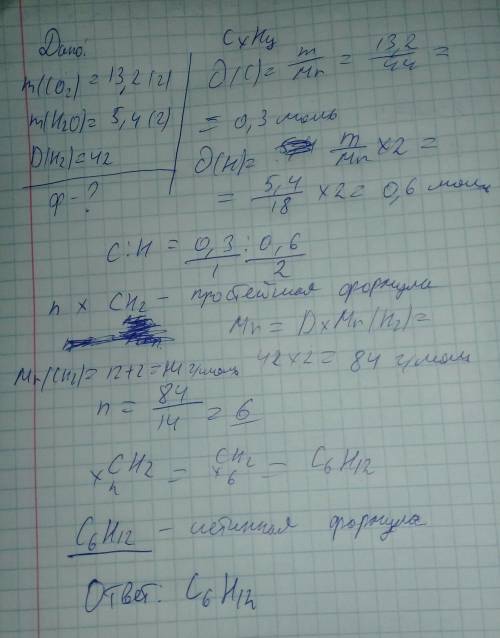 Дано:
m(CO₂) = 13,2 (г)
m(H₂O) = 5,4 (г)
D(H₂) = 42
ф - ?
CxHy
ϑ(C) = m/Mr = 13,2/44 =
= 0,3 моль
ϑ(H) = m/Mr × 2 =
= 5,4/18 × 2 = 0,6 моль
C:H = 0,3/1 : 0,6/2
n × CH₂ - простейшая формула
Mr = D × Mr(H₂) =
42 × 2 = 84 г/моль
Mr(CH₂) = 12+2 = 14 г/моль
n = 84/14 = 6
×n CH₂ = ×6 CH₂ = C₆H₁₂
C₆H₁₂ - истинная формула
Ответ: C₆H₁₂